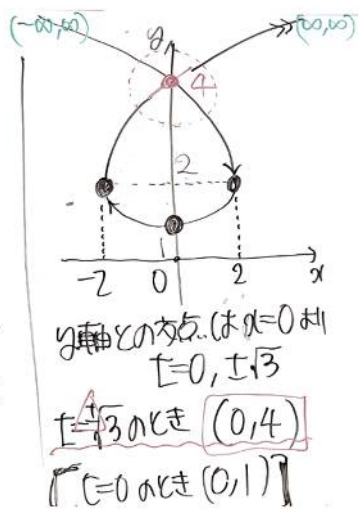 (-∞,∞) (∞,∞)
y
4
2
1
-2 0 2 x
y軸との交点はx=0より
t=0, ±√3
t=±√3のとき (0,4)
「t=0のとき (0,1)」